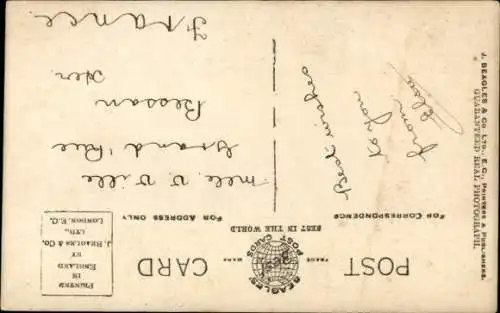 POST CARD
TRADE MARK
BEAGLES' POST CARDS
BEST
BEST IN THE WORLD
FOR CORRESPONDENCE
FOR ADDRESS ONLY
PRINTED
IN
ENGLAND
BY
J. BEAGLES & Co.
LTD.,
LONDON, E.C.
J. BEAGLES & Co LTD., E.C., PRINTERS & PUBLISHERS.
GUARANTEED REAL PHOTOGRAPH.
Best wishes
to you
from
Elsie
Mlle. V. Ville
Grand' Rue
Bessan
Her.
France.